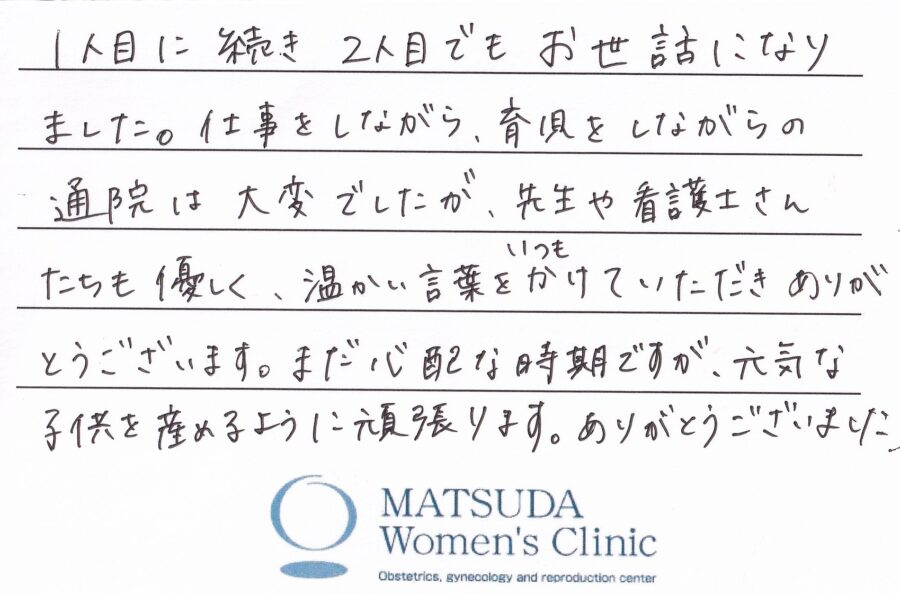 1人目に続き 2人目でも お世話になり
ました。仕事をしながら、育児をしながらの
通院は 大変でしたが、先生や看護士さん
いつも
たちも優しく、温かい言葉をかけていただき ありが
とうございます。まだ心配な時期ですが、元気な
子供を産めるように頑張ります。ありがとうございました
MATSUDA
Women's Clinic
Obstetrics, gynecology and reproduction center